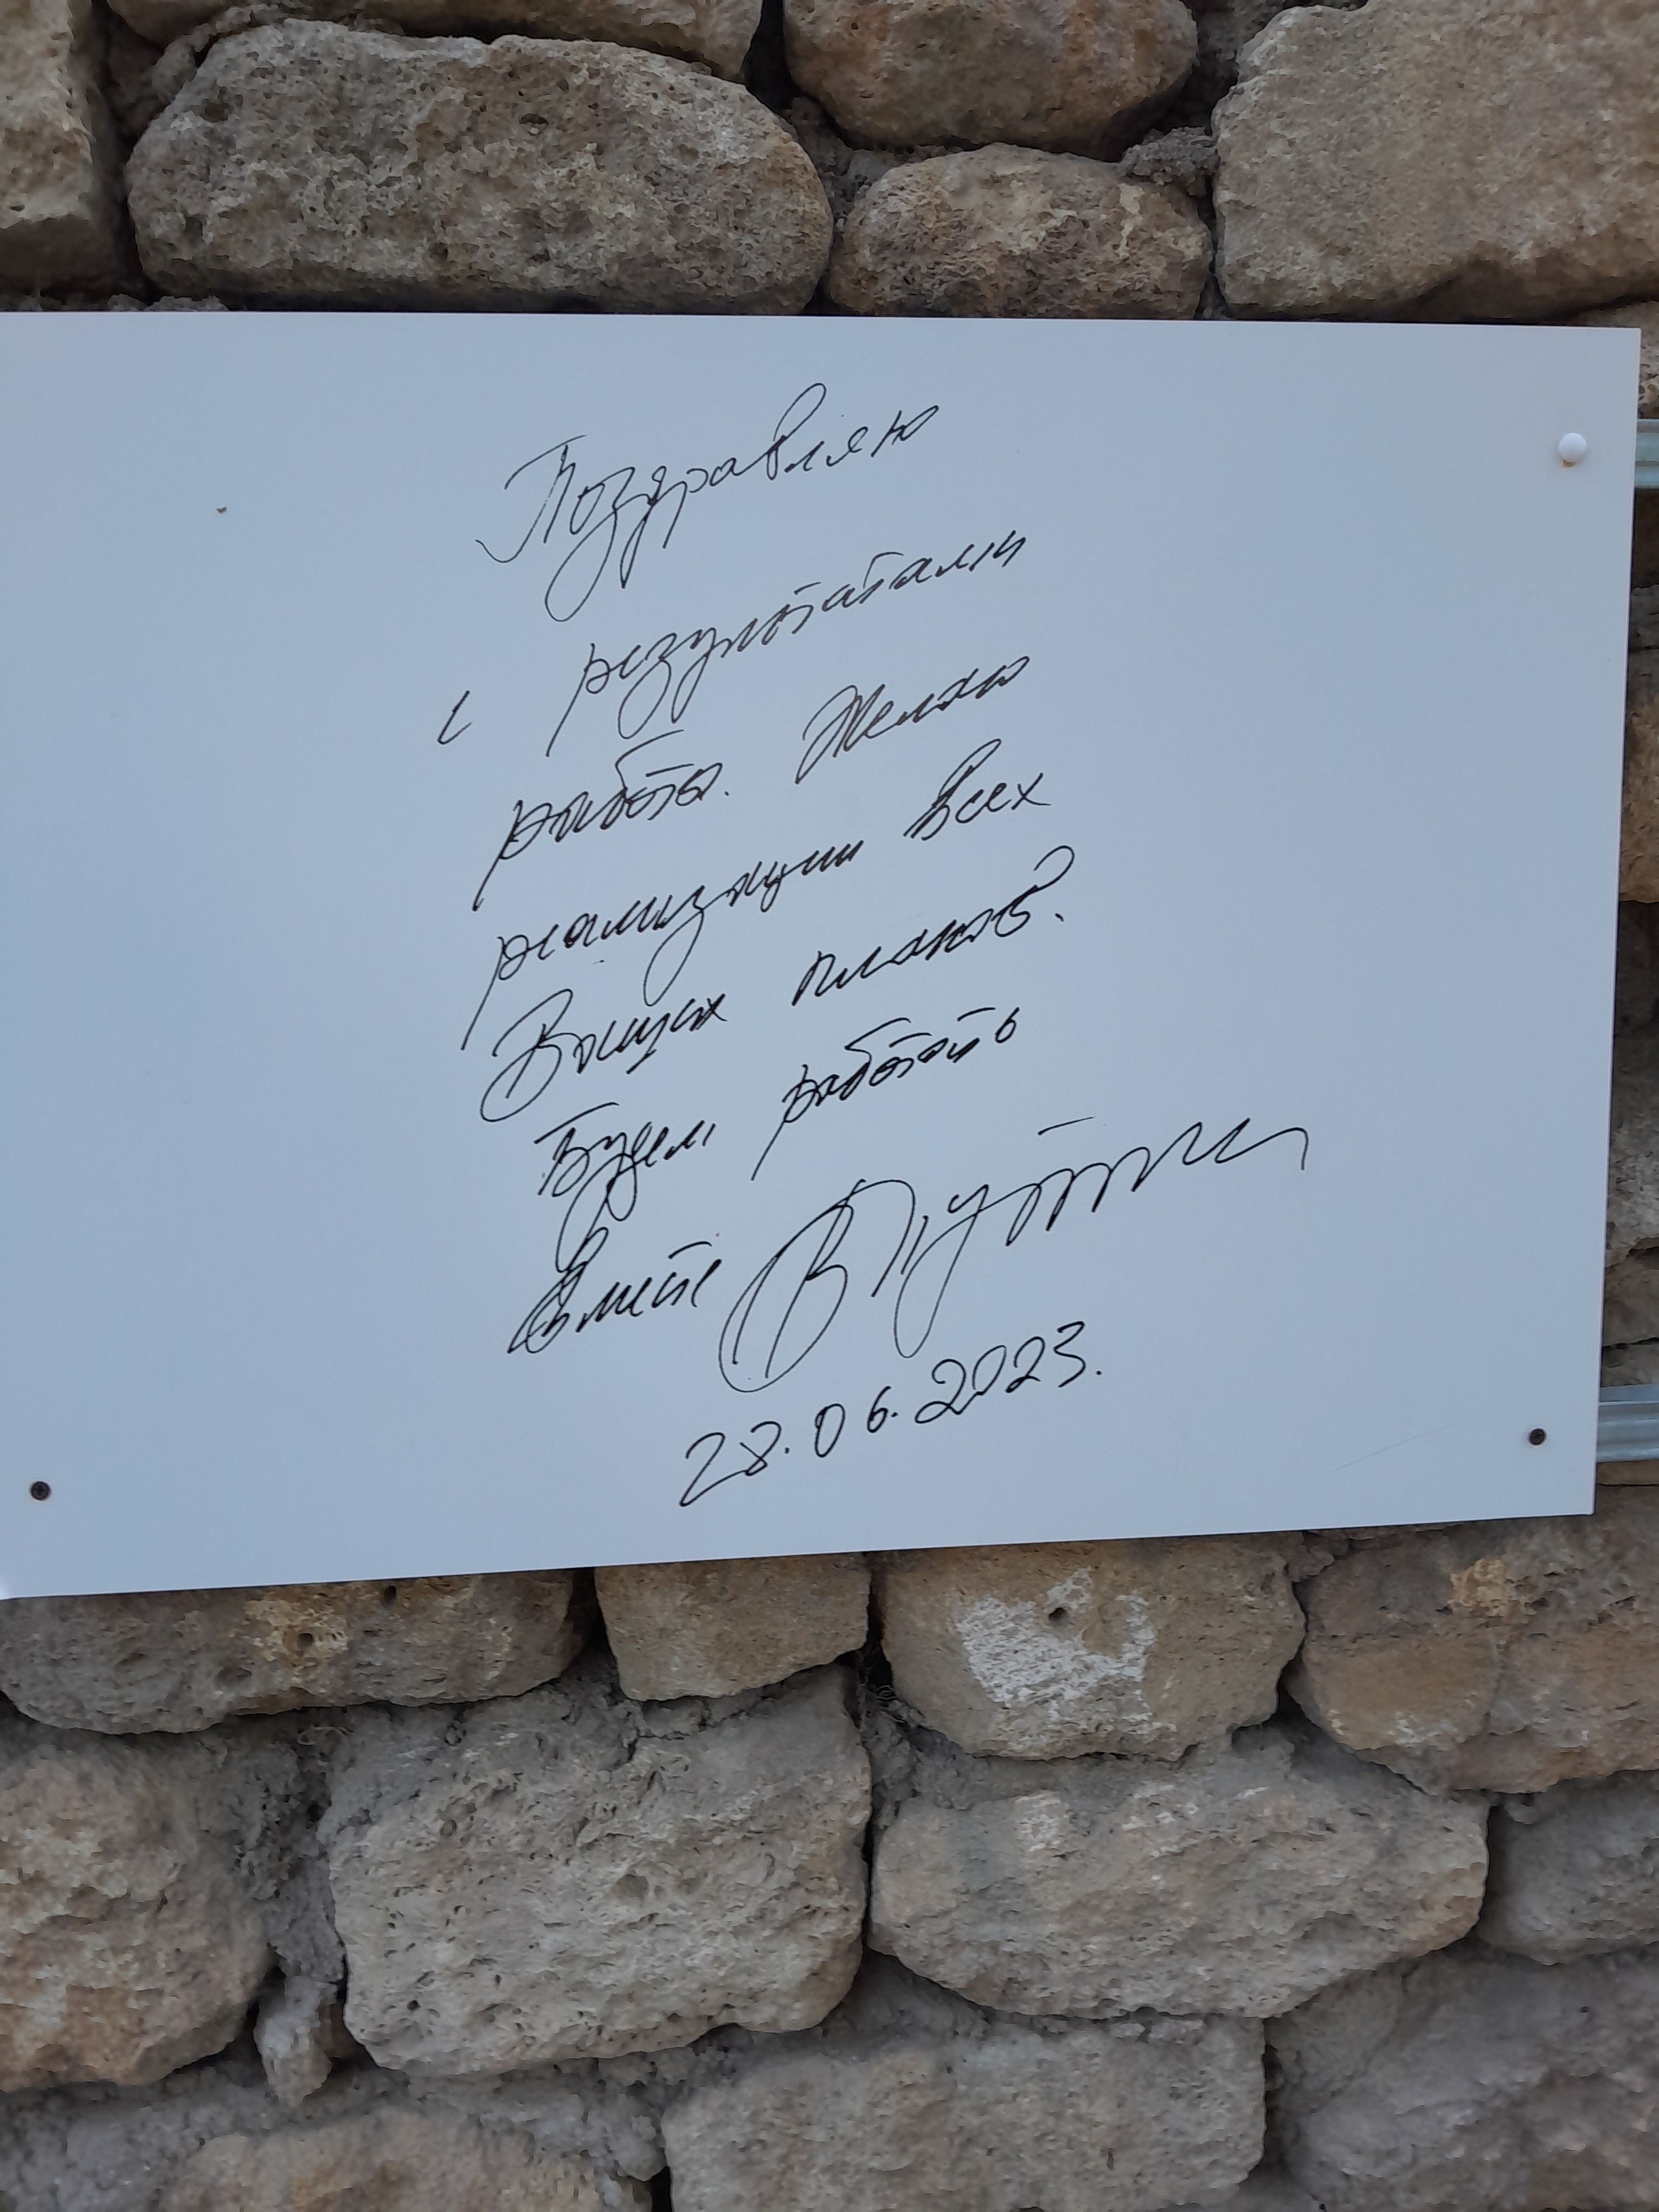 Поздравляю
с результатами
работы. Желаю
реализации всех
Ваших планов.
Будем работать
вместе ВПутин
28.06.2023.